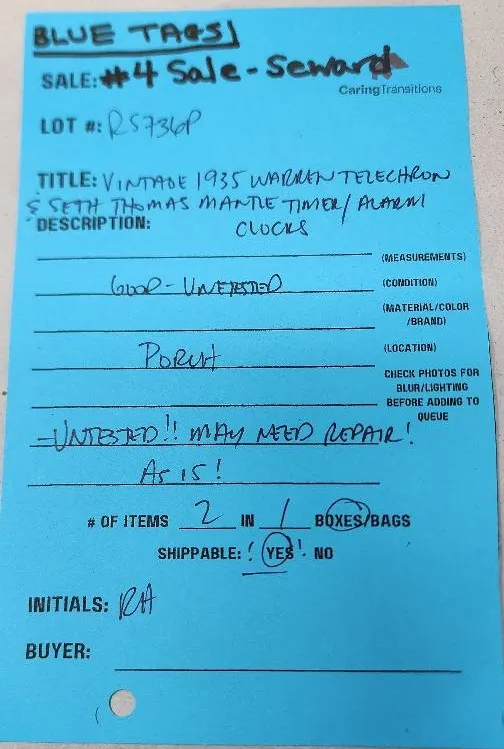 BLUE TAGS!
SALE: #4 Sale - Seward
CaringTransitions
LOT #: RS736P
TITLE: VINTAGE 1935 WARREN TELECHRON
& SETH THOMAS MANTLE TIMER/ALARM
DESCRIPTION: CLOCKS
(MEASUREMENTS)
GOOD - UNTESTED (CONDITION)
(MATERIAL/COLOR
/BRAND)
PORCH (LOCATION)
CHECK PHOTOS FOR
BLUR/LIGHTING
BEFORE ADDING TO
QUEUE
- UNTESTED!! MAY NEED REPAIR!
AS IS!
# OF ITEMS 2 IN 1 BOXES/BAGS
SHIPPABLE: ! YES ! NO
INITIALS: RH
BUYER: